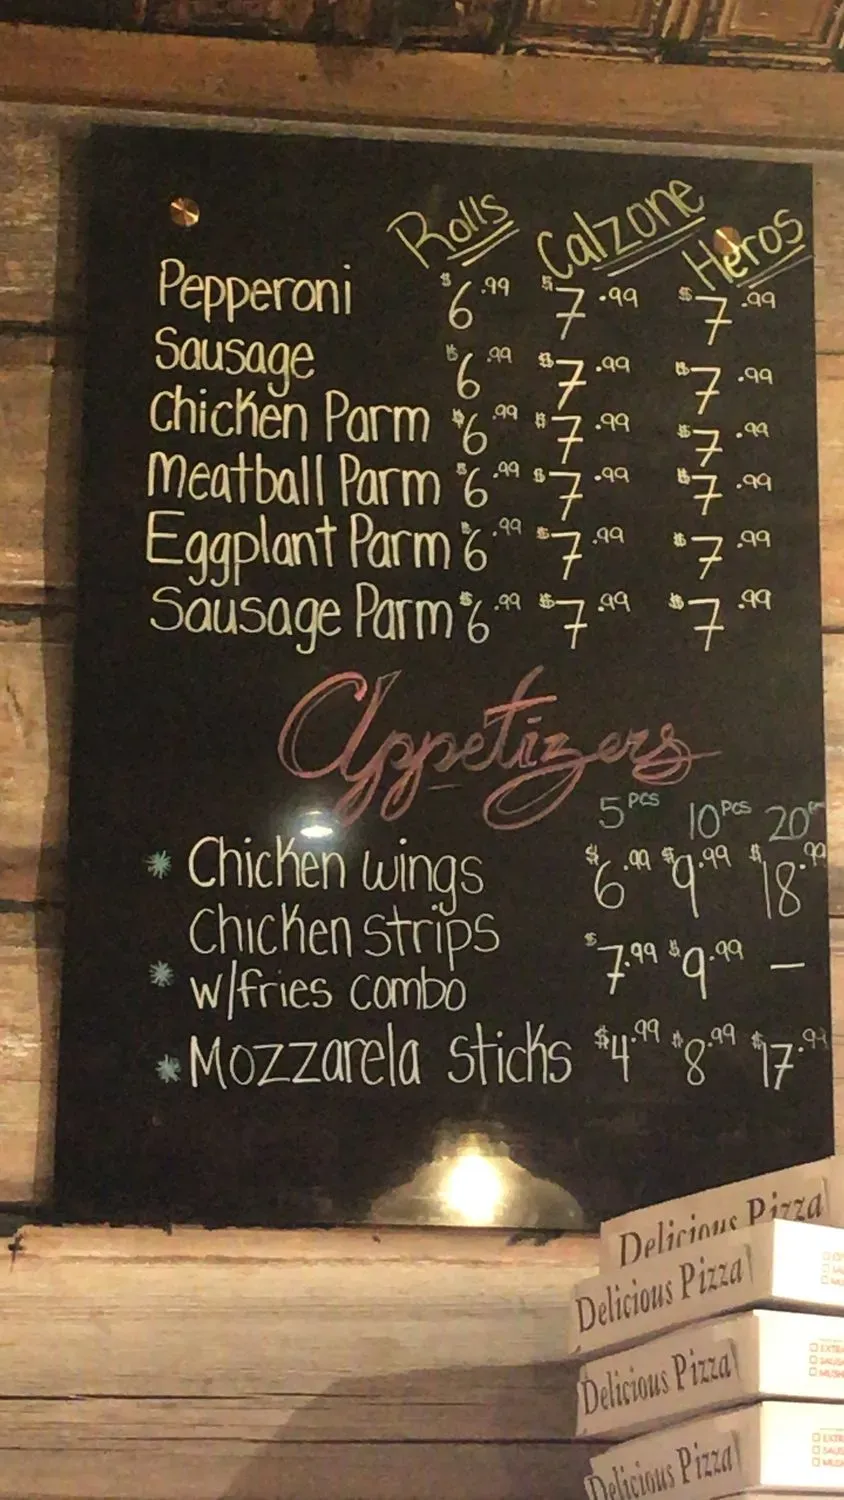 Rolls Calzone Heros
Pepperoni $6.99 $7.99 $7.99
Sausage $6.99 $7.99 $7.99
Chicken Parm $6.99 $7.99 $7.99
Meatball Parm $6.99 $7.99 $7.99
Eggplant Parm $6.99 $7.99 $7.99
Sausage Parm $6.99 $7.99 $7.99
Appetizers
5 pcs 10 pcs 20
* Chicken wings $6.99 $9.99 $18.99
Chicken strips
* w/fries combo $7.99 $9.99 —
* Mozzarela sticks $4.99 $8.99 $17.99
Delicious Pizza
Delicious Pizza
Delicious Pizza
Delicious Pizza